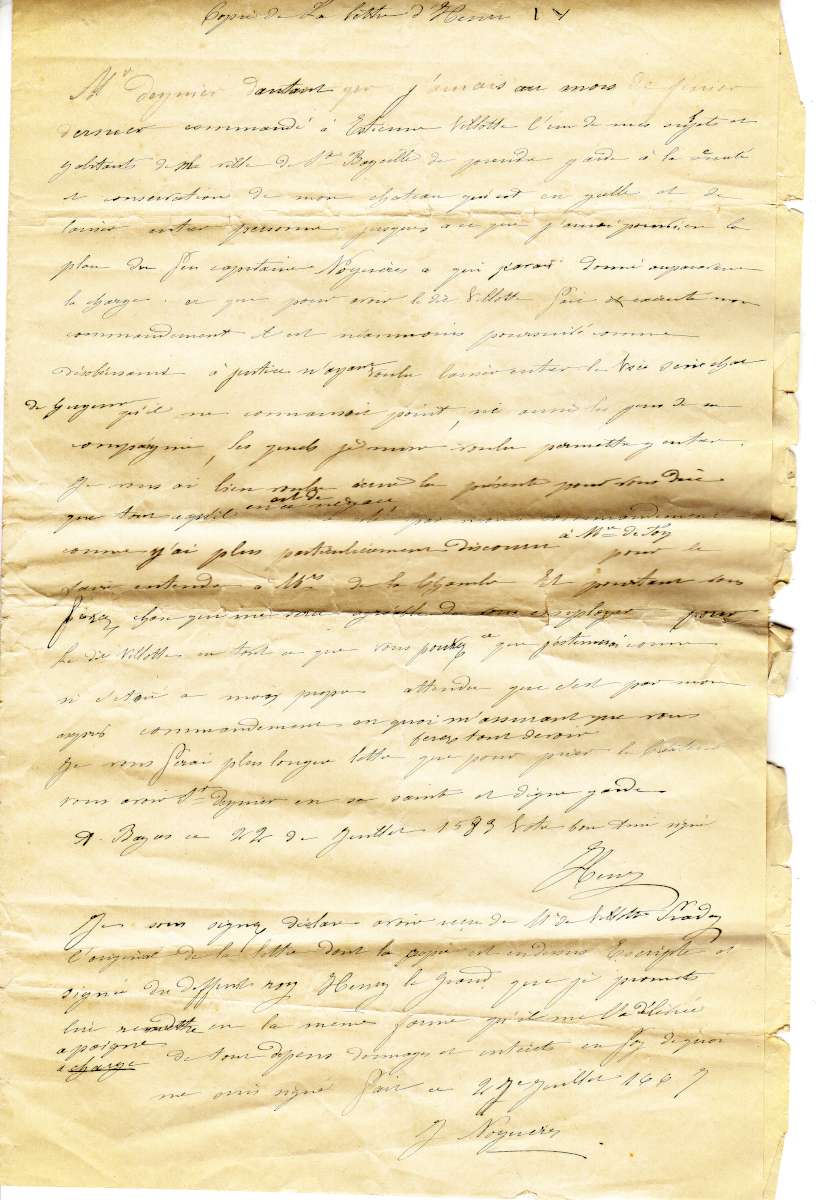 Copie de La lettre d'Henri IV
Mr deymier d'autant que j'aurais au mois de fevrier
dernier commandé à Estienne Villotte l'un de mes sujets et
habitants de ma ville de Ste Bazeille de prendre garde à la sureté
et conservation de mon chateau qui est en ycelle et de
laisser entrer personne jusques a ce que j'aurai pourvu en la
place du feu capitaine Noguères a qui j'avais donné auparavant
la charge et que pour avoir le dit Villotte suivi et exécuté mon
commandement il est néanmoins poursuivi comme
désobéissant à justice n'ayant voulu laisser entrer le vice sénéchal
de Guyenne qu'il ne connaissait point, ni aussi les gens de sa
compagnie, les quels je n'eusse voulu permettre y entrer.
Je vous ai bien voulu écrire la présente pour vous dire
que tout ce qu'il en ce a été par mon commandement
comme j'ai plus particulièrement discouru à Mr de
pour le
faire entendre à Mrs de la Chambre Et pourtant vous
ferez chose que me sera agréable de vous employer pour
Le dit Villotte en tout ce que vous pourrez ce que j'estimerai comme
si c'était a moy propre attendu que c'est par mon
exprès commandement en quoi m'assurant que vous
ferez tout devoir
Je ne vous ferai plus longue lettre que pour prier le Créateur
vous avoir Mr deymier en sa sainte et digne garde.
A Bazas ce 22 de Juillet 1583 Votre bon ami signé
Henry
Je sous signé déclare avoir reçu de Mr de Villotte
l'original de la lettre dont la copie est endessus Escripte et
signée du deffunt roy Henry le Grand, que je promets
lui remettre en la meme forme qu'il me l'a délivrée
a poigne
à charge de tous dépens dommages et intérêts en foy de quoi
me suis signé Fait ce 27e Juillet 1667
J Noguères